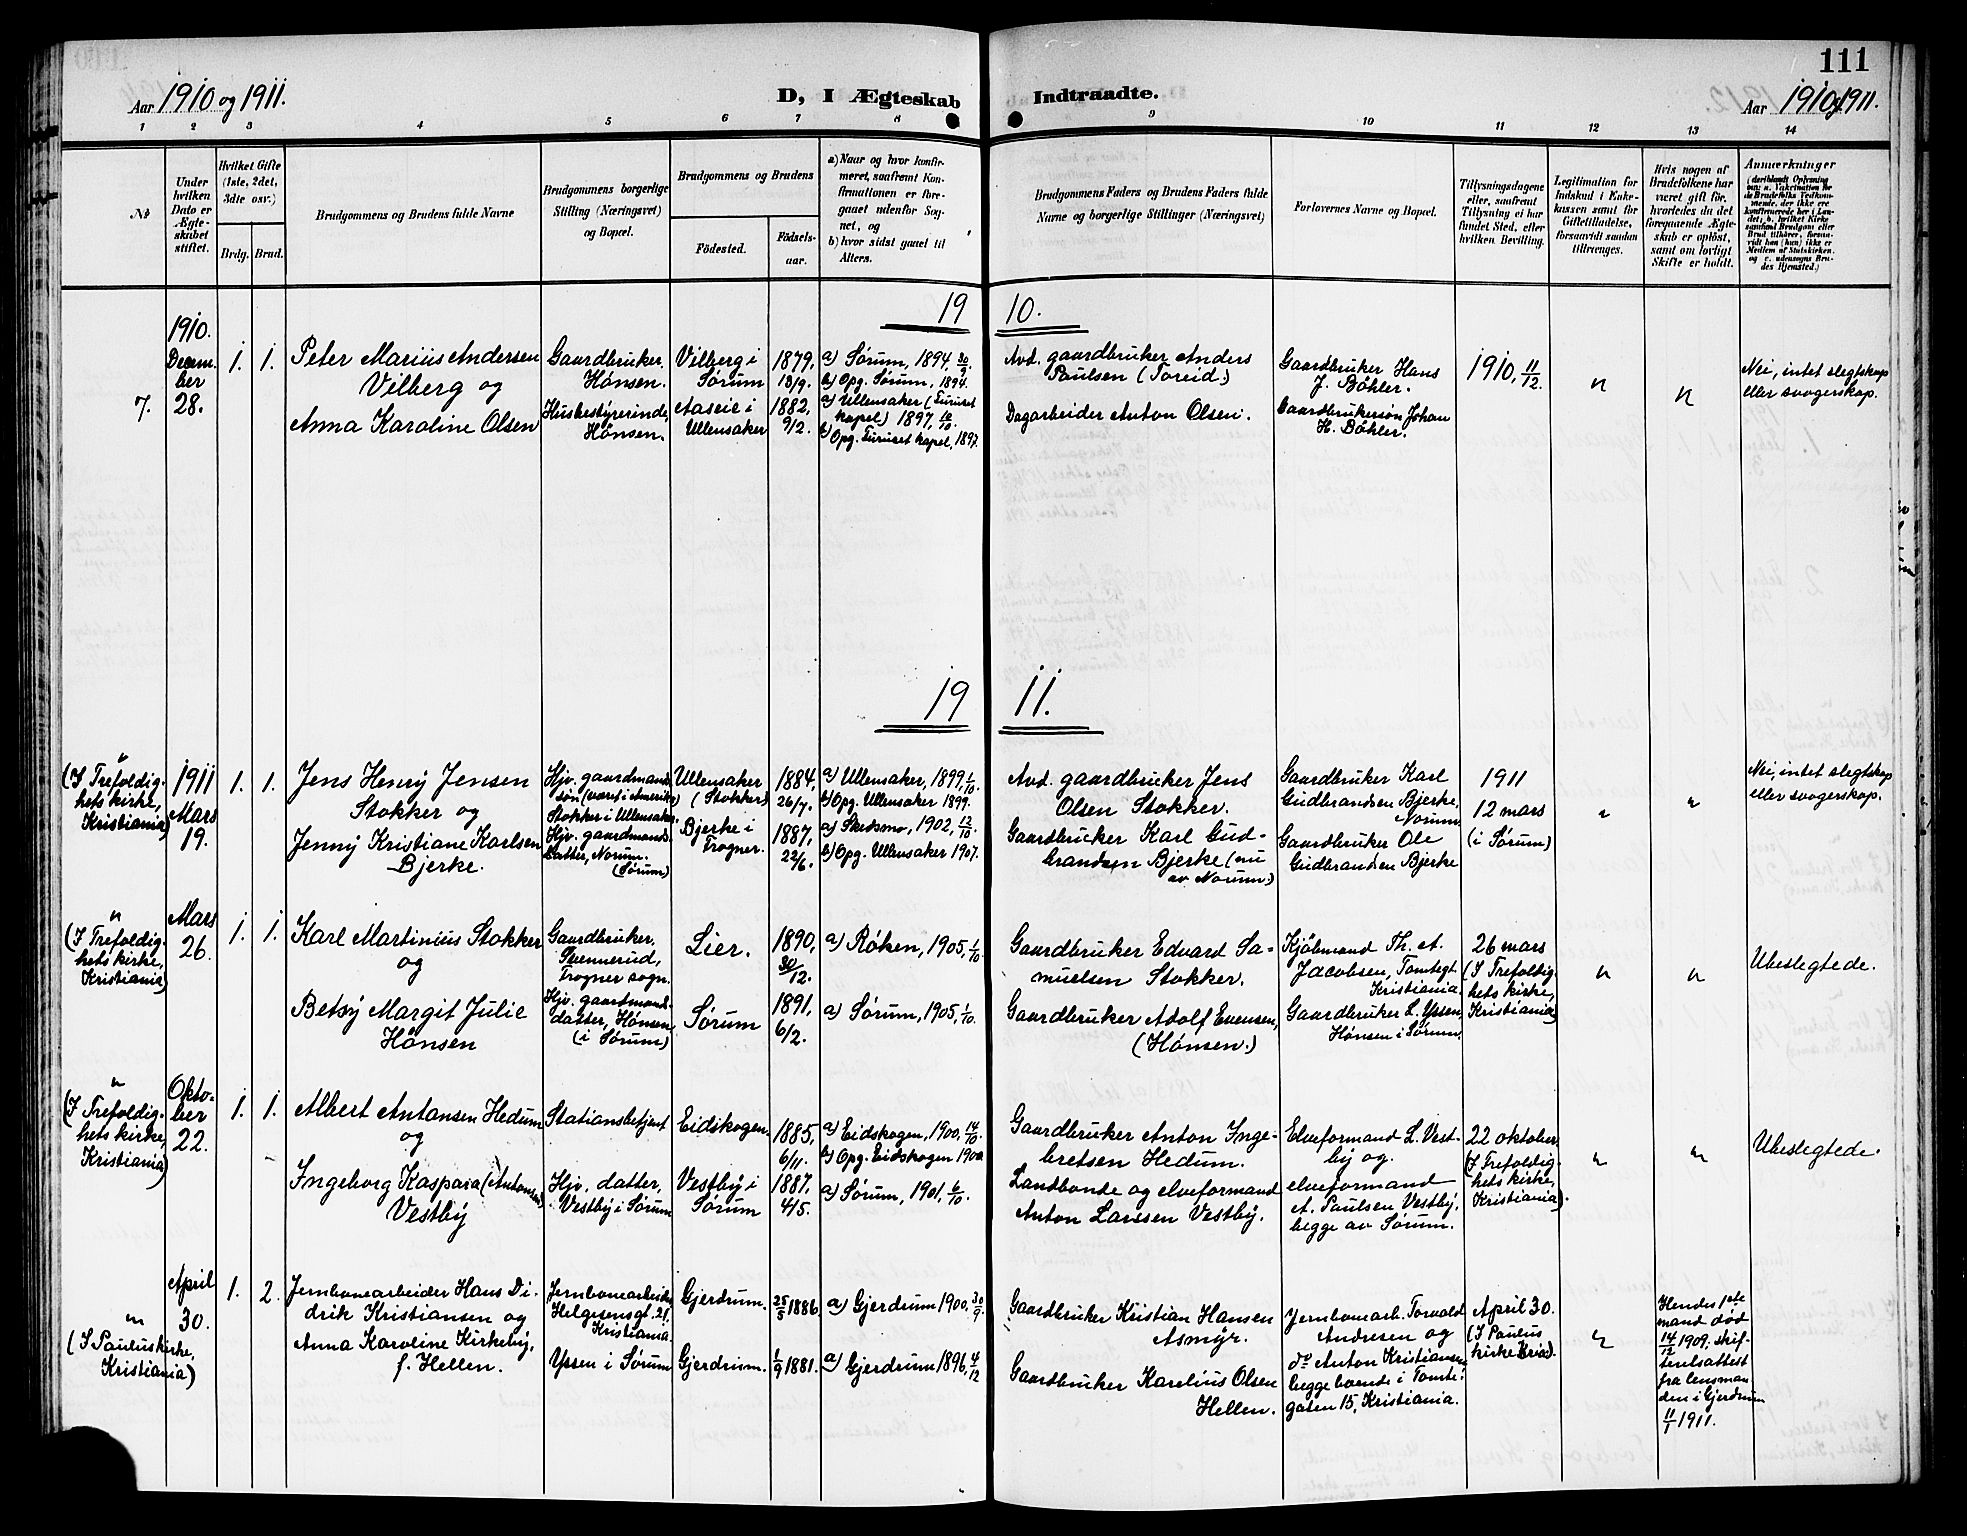 111
Aar 1910 og 1911.
D, I Ægteskab Indtraadte.
Aar 1910 og 1911.
1 2 3 4 5 6 7 8 9 10 11 12 13 14
№
Under
hvilken
Dato er
Ægte-
skabet
stiftet.
Hvilket Gifte
(1ste, 2det,
3dte osv.)
Brdg. Brud.
Brudgommens og Brudens fulde Navne
Brudgommens borgerlige
Stilling (Næringsvei)
og Bopæl.
Brudgommens og Brudens
Födested.
Födsels-
aar.
a) Naar og hvor konfir-
meret, saafremt Kon-
firmationen er fore-
gaaet udenfor Sog-
net, og
b) hvor sidst gaaet til
Alters.
Brudgommens Faders og Brudens Faders fulde
Navne og borgerlige Stillinger (Næringsvei)
Forlovernes Navne og Bopæl.
Tillysningsdagene
eller, saafremt
Tillysning ei har
fundet Sted, efter
hvilken Bevilling.
Legitimation for
Indskud i Enke-
kassen samt for
Giftetilladelse,
forsaavidt saadan
tiltrænges.
Hvis nogen af
Brudefolkene har
været gift för,
hvorledes da det
foregaaende Ægte-
skab er oplöst,
samt om lovligt
Skifte er holdt.
Anmærkninger
(deriblandt Oplysning
om: a. Vakcination for
de Brudefolks Vedkom-
mende, der ikke ere
konfirmerede her i Lan-
det; b. hvilket Kirke-
samfund Brudgom eller
Brud tilhører, forsaa-
vidt han (hun) ikke er
Medlem af Statskirken,
og c. udensogns Bru-
des Hjemsted.)
19 10.
7.
1910.
Decem-
ber
28.
1. 1.
Peter Marius Andersen
Vilberg og
Anna Karoline Olsen
Gaardbruker,
Hønsen.
Husbestyrerinde,
Hønsen.
Vilberg i
Sørum
Aaseie i
Ullensaker
1879,
18/9.
1882,
9/2.
a) Sørum, 1894, 30/9
b) Opg. Sørum, 1894.
a) Ullensaker (Furuset
kapel) 1897, 10/10
b) Opg. Furuset kapel, 1897.
Avd. gaardbruker Anders
Paulsen (Toreid)
Dagarbeider Anton Olsen.
Gaardbruker Hans
J. Bøhler.
Gaardbrukersøn Johan
H. Bøhler.
1910, 11/12.
"
"
Nei, intet slegtskap
eller svogerskap.
19 11.
"
(I Trefoldig-
hets kirke,
Kristiania)
1911
Mars
19.
1. 1.
Jens Henry Jensen
Stokker og
Jenny Kristiane Karlsen
Bjerke.
Hjv. gaardmands-
søn (været i Amerika)
Stokker i Ullensaker
Hjv. gaardmands-
datter, Norum.
(Sørum)
Ullensaker
(Stokker)
Bjerke i
Frogner.
1884,
26/7.
1887,
22/6.
a) Ullensaker, 1899, 1/10.
b) Opg. Ullensaker 1899.
a) Skedsmo, 1902, 12/10
b) Opg. Ullensaker 1907.
Avd. gaardbruker Jens
Olsen Stokker.
Gaardbruker Karl Gud-
brandsen Bjerke (nu
av Norum.)
Gaardbruker Karl
Gudbrandsen Bjerke,
Norum.
Gaardbruker Ole
Gudbrandsen Bjerke
1911
12 mars
(i Sørum)
"
"
Nei, intet slegtskap
eller svogerskap.
"
(I Trefoldig-
hets kirke,
Kristiania)
Mars
26.
1. 1.
Karl Martinius Stokker
og
Betsy Margit Julie
Hønsen
Gaardbruker,
Frogner sogn.
Hjv. gaardmands-
datter, Hønsen,
(i Sørum)
Lier.
Sørum
1890,
30/12.
1891,
6/2.
a) Røken, 1905, 1/10
a) Sørum, 1905, 1/10.
Gaardbruker Edvard Sa-
muelsen Stokker.
Gaardbruker Adolf Evensen,
(Hønsen.)
Kjøbmand Th. A.
Jacobsen, Tomtegt.
Kristiania.
Gaardbruker L. Yssen,
Hønsen i Sørum.
26 mars
(I Trefoldig-
hets kirke,
Kristiania)
"
"
Ubeslegtede.
"
(I Trefoldig-
hets kirke,
Kristiania)
Okto-
ber
22.
1. 1.
Albert Antonsen Hedum
og
Ingeborg Kaspara (Antonsen)
Vestby
Stationsbetjent
Hjv. datter,
Vestby i Sørum
Eidskogen.
Vestby i
Sørum
1885,
6/11.
1887,
4/5.
a) Eidskogen, 1900, 14/10.
b) Opg. Eidskogen 1900
a) Sørum, 1901, 6/10.
Gaardbruker Anton Inge-
bretsen Hedum.
Landbonde og elveformand
Anton Larssen Vestby.
Elveformand L. Vest-
by og
elveformand
A. Paulsen Vestby,
begge av Sørum.
22 oktober
(I Trefoldig-
hets kirke,
Kristiania).
"
"
Ubeslegtede.
"
(I Pauluskirke,
Kristiania)
April
30.
1. 2.
Jernbanearbeider Hans Di-
drik Kristiansen og
Anna Karoline Kirkeby,
f. Hellen.
Jernbanearbeider
Helgesensgt. 21.
Kristiania.
Yssen i Sørum
Gjerdrum.
Gjerdrum.
25/5 1886
1/9 1881.
a) Gjerdrum 1900, 30/9.
a) Gjerdrum 1896, 4/12
Gaardbruker Kristian Hansen
Asmyr.
Gaardbruker Karelius Olsen
Hellen.
Jernbanearb. Torvald
Andresen og
do Anton Kristiansen
begge boende i Tomte-
gaten 15, Kristiania.
April 30.
(I Paulus
kirke Kria).
"
Hendes 1ste
mand død
14/12 1909. skif-
teattest
fra lensman
den i Gjerdrum
11/1 1911.